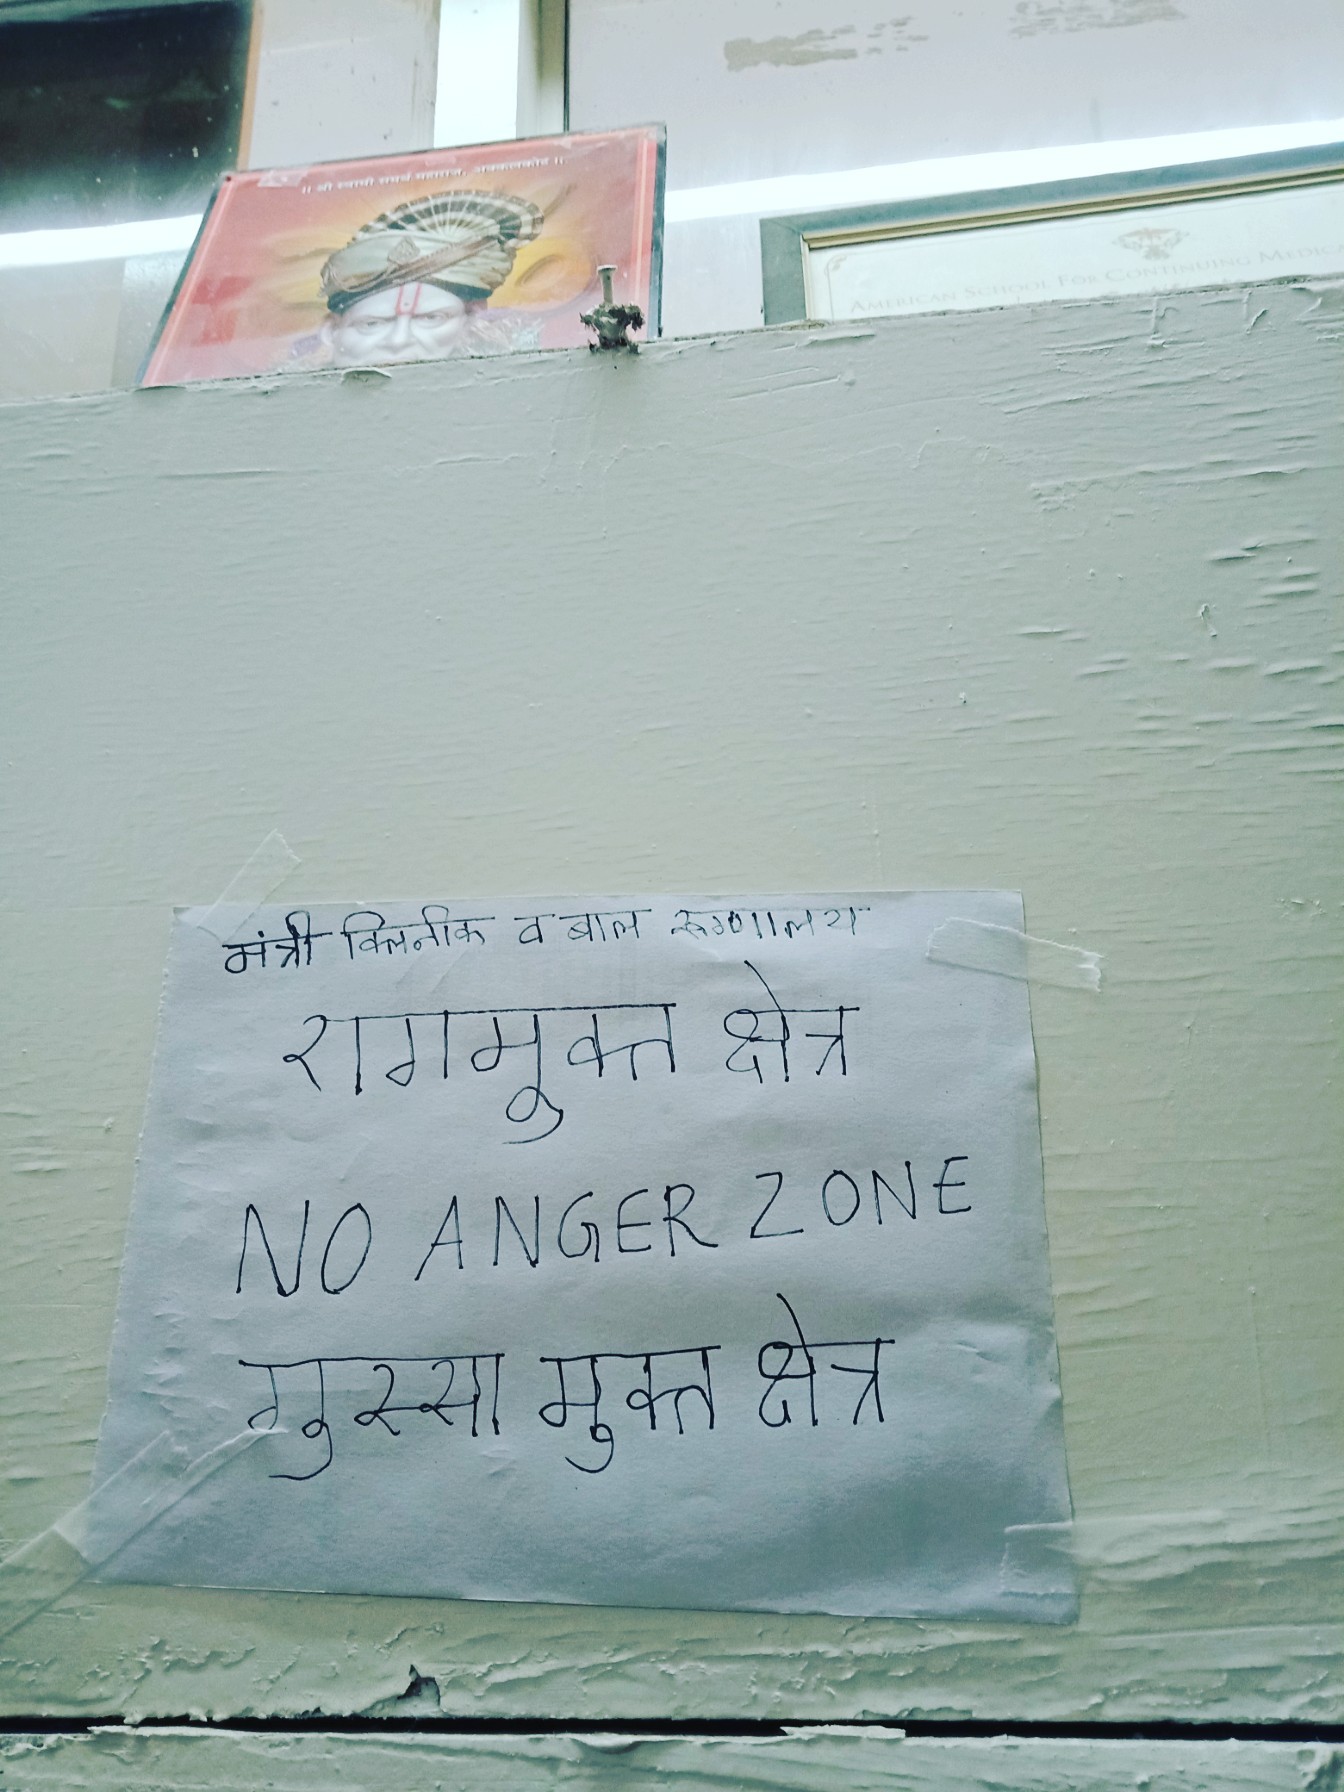 ॥ श्री स्वामी समर्थ महाराज, अक्कलकोट ॥
AMERICAN SCHOOL FOR CONTINUING MEDIC
मंत्री क्लिनीक व बाल रूग्णालय
रागमुक्त क्षेत्र
NO ANGER ZONE
गुस्सा मुक्त क्षेत्र